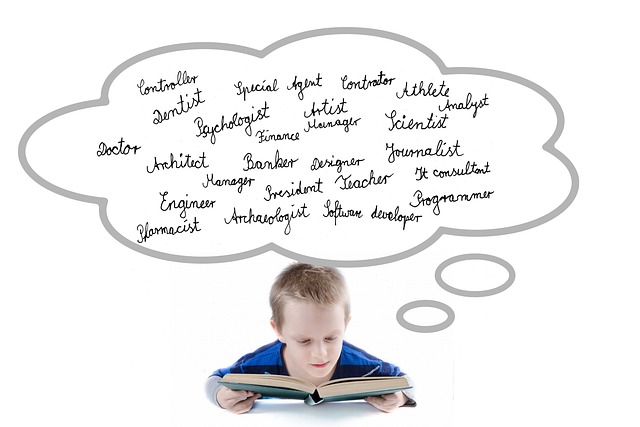 Controller
Special Agent
Contrator
Athlete
Dentist
Artist
Analyst
Psychologist
Finance Manager
Scientist
Doctor
Architect
Banker
Designer
Journalist
Manager
President
Teacher
It consultant
Engineer
Programmer
Pharmacist
Archaeologist
Software developer